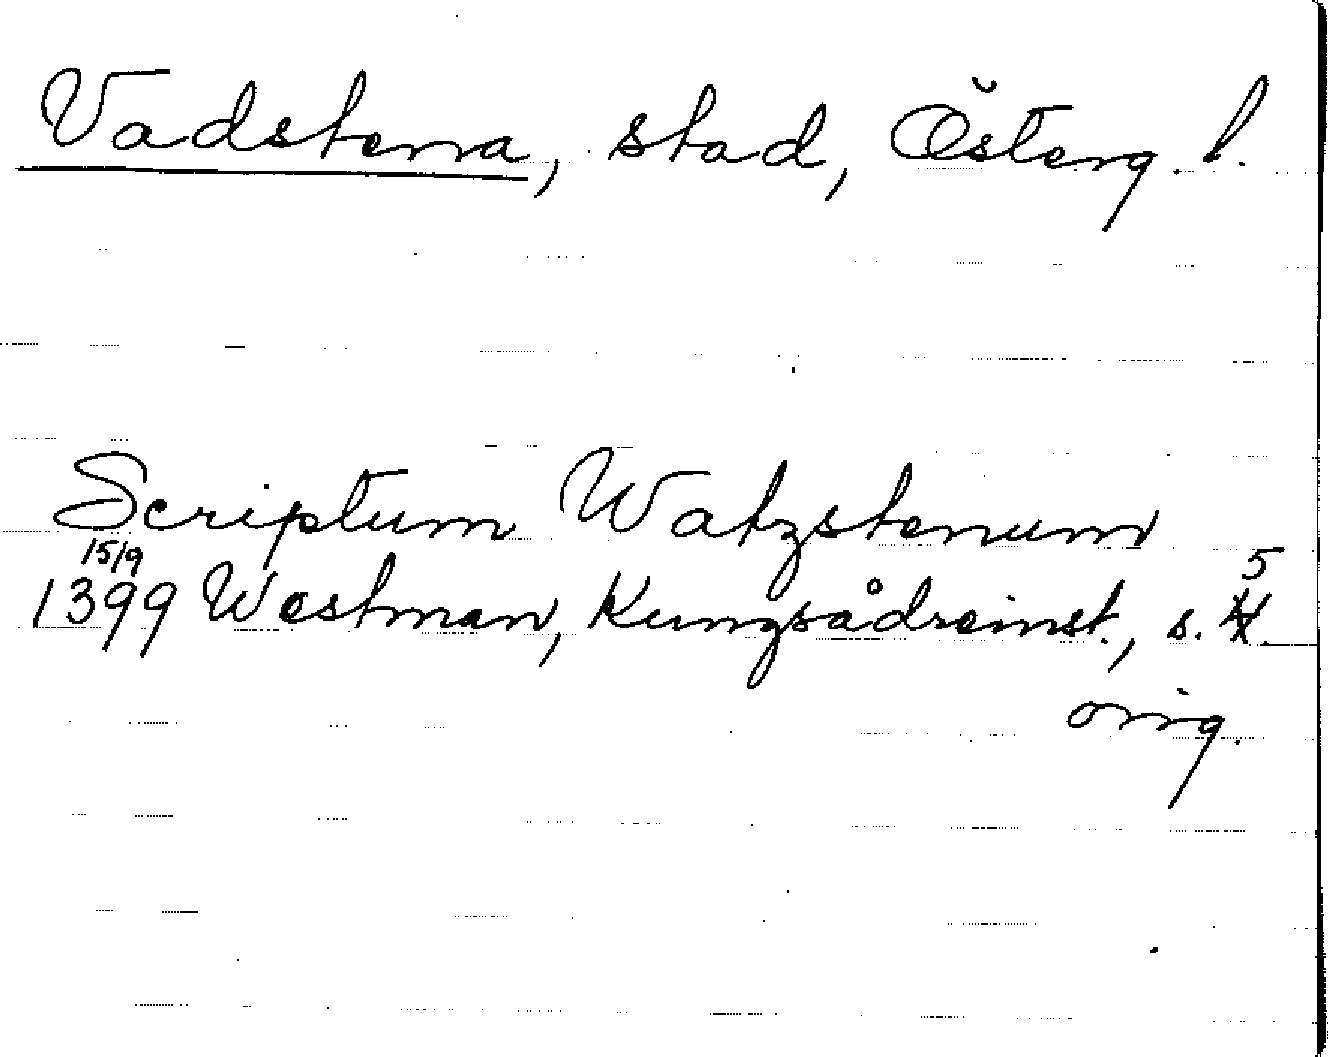 Vadstena, stad, Österg. l.
Scriptum Watzstenum
15/9
1399 Westman, Kungsådreinst., s. 5
orig.